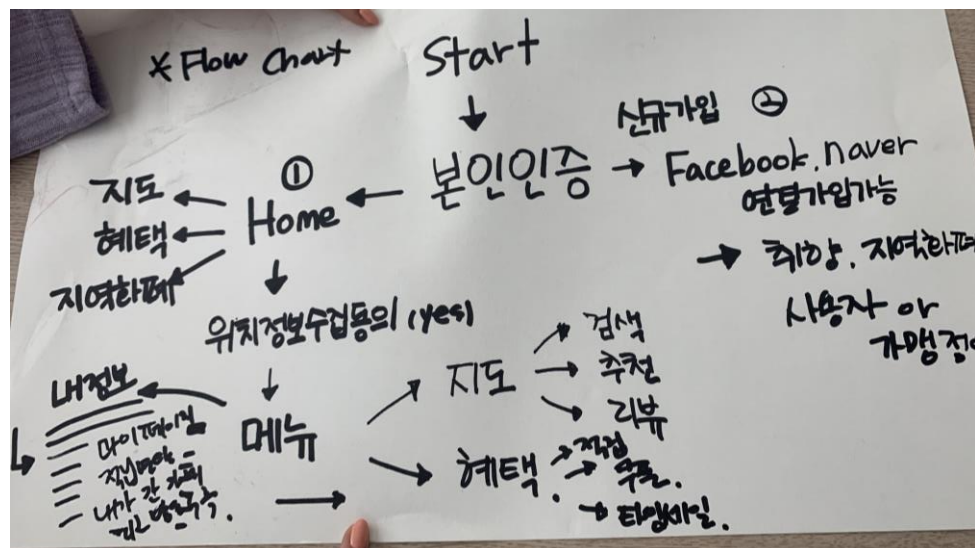 * Flow Chart
Start
신규가입 ②
본인인증 → Facebook. naver
연결가입가능
→ 취향. 지역화폐
사용자 or
가맹점
① Home
지도
혜택
지역화폐
위치정보수집동의 (yes)
메뉴
내정보
마이페이지
적립현황
내가 간 카페
지도
검색
추천
리뷰
혜택
적립
쿠폰.
타임세일.